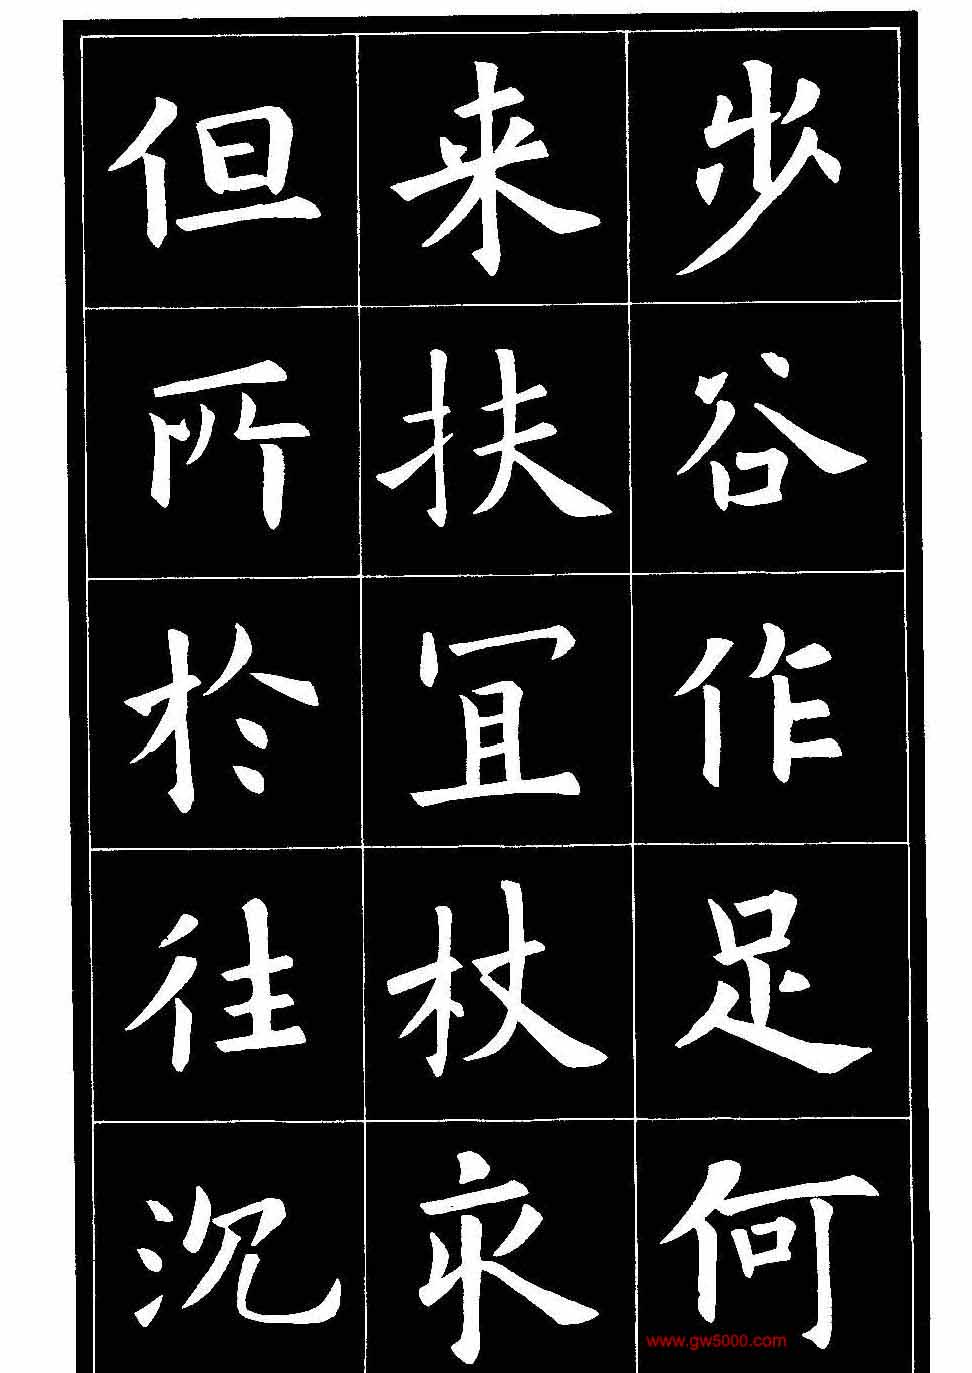 步谷作足何
来扶冝杖永
但所於往沉
www.gw5000.com